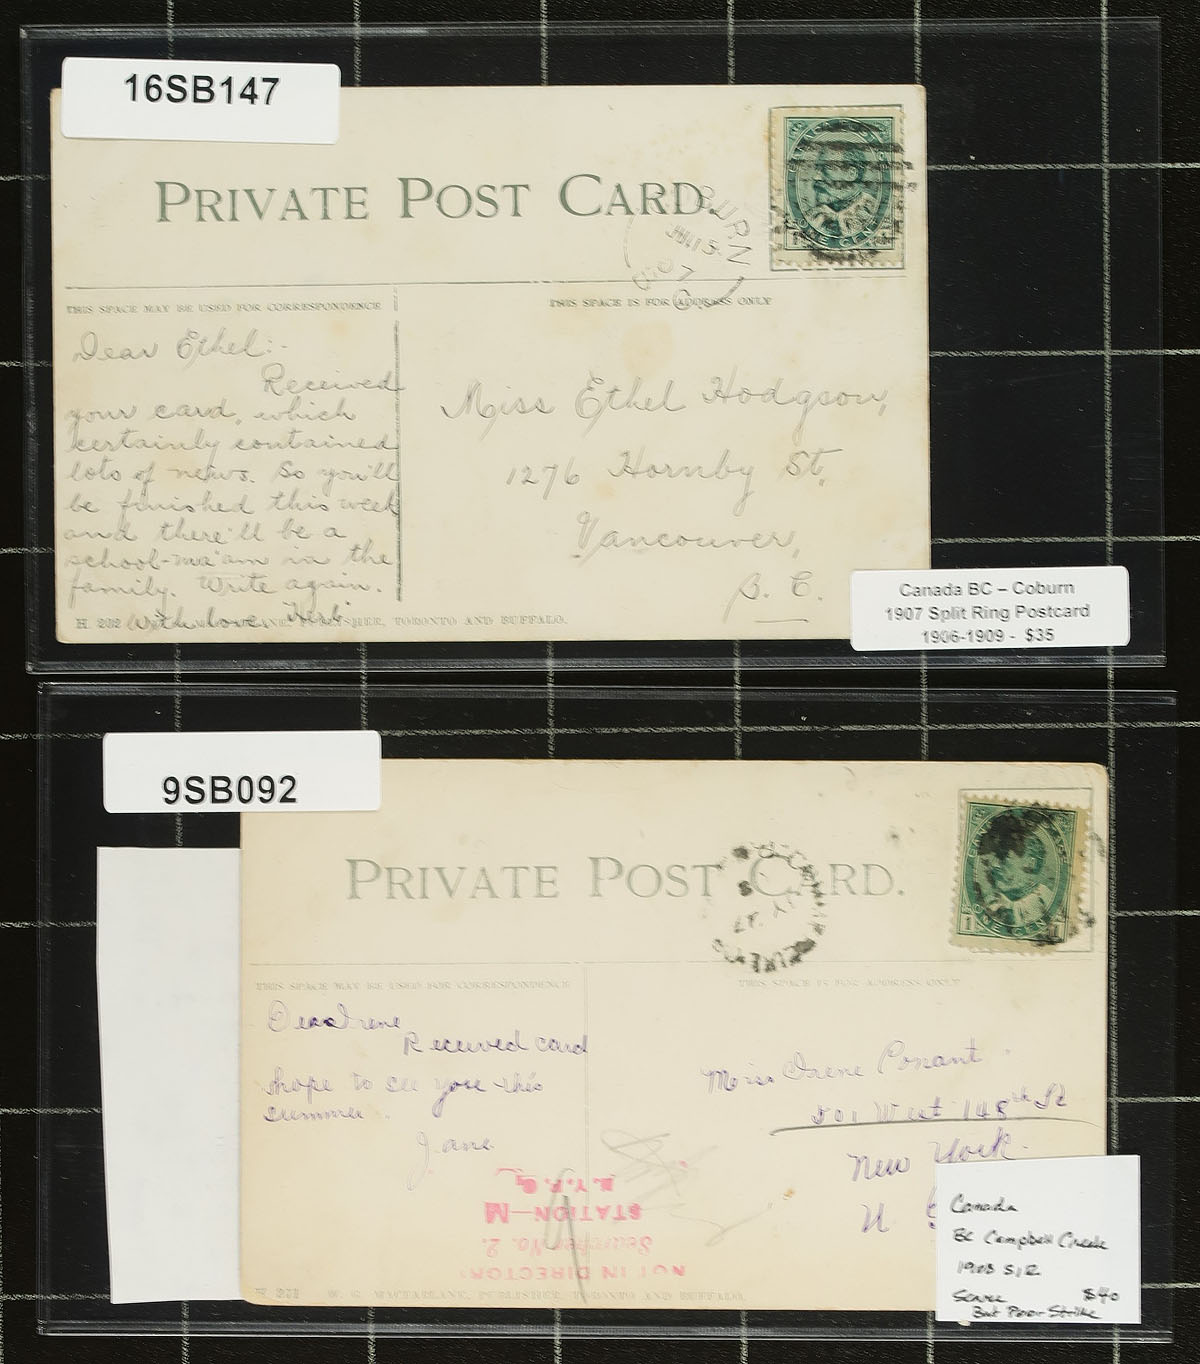 16SB147
PRIVATE POST CARD.
BURN
JUN 15
07
C.
ONE CENT
THIS SPACE MAY BE USED FOR CORRESPONDENCE
THIS SPACE IS FOR ADDRESS ONLY
Dear Ethel:-
Received
your card, which
certainly contained
lots of news. So you'll
be finished this week
and there'll be a
school-ma'am in the
family. Write again.
With love
Miss Ethel Hodgson,
1276 Hornby St.
Vancouver,
B. C.
PUBLISHER, TORONTO AND BUFFALO.
Canada BC – Coburn
1907 Split Ring Postcard
1906-1909 - $35
9SB092
PRIVATE POST CARD.
1 ONE CENT
THIS SPACE MAY BE USED FOR CORRESPONDENCE
THIS SPACE IS FOR ADDRESS ONLY
Dear Irene
Received card
hope to see you this
summer
Jane
Miss Irene Ponant
501 West 148th St
New York.
U
N.Y.P.O.
STATION—M
Searcher No. 2.
NOT IN DIRECTORY
W. G. MACFARLANE, PUBLISHER, TORONTO AND BUFFALO.
Canada
BC Campbell Creek
1908 S/R
Scarce $40
But Poor Strike